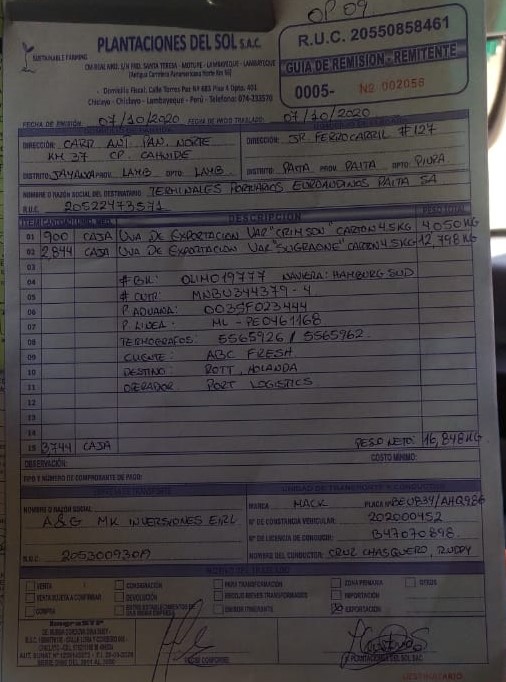 OP 09
PLANTACIONES DEL SOL S.A.C.
SUSTAINABLE FARMING
R.U.C. 20550858461
GUIA DE REMISION - REMITENTE
0005- Nº 002056
Domicilio Fiscal: Calle Torres Paz Nº 685 Piso 4 Dpto. 401
Chiclayo - Chiclayo - Lambayeque - Perú - Telefono: 074-233570
FECHA DE EMISIÓN: 07/10/2020 FECHA DE INICIO TRASLADO: 07/10/2020
DIRECCIÓN: CARR ANT. PAN. NORTE
KM 37 CP. CAHUIDE
DISTRITO: JAYANCA PROV. LAMB. DPTO. LAMB.
DIRECCIÓN: JR. FERROCARRIL # 127
DISTRITO: PAITA PROV. PAITA DPTO. PIURA
NOMBRE O RAZÓN SOCIAL DEL DESTINATARIO TERMINALES PORTUARIOS EUROANDINOS PAITA SA
R.U.C. 20522473571
ITEM DESCRIPCION PESO TOTAL
01 900 CAJA UVA DE EXPORTACION VAR "CRIMSON" CARTON 4.5KG 4,050 KG
02 2,844 CAJA UVA DE EXPORTACION VAR "SUGRAONE" CARTON 4.5KG 12,798 KG
03
04 # BK: OLIM019777 NAVIERA: HAMBURG SUD
05 # CNTR: MNBU344379-4
06 P. ADUANA: 0039F023444
07 P. LINEA: ML-PE0461168
08 TERMOGRAFOS: 5565926 / 5565962
09 CLIENTE: ABC FRESH
10 DESTINO: ROTT, HOLANDA
11 OPERADOR PORT LOGISTICS
12
13
14
15 3,744 CAJA PESO NETO: 16,848 KG
OBSERVACIÓN: COSTO MÍNIMO:
TIPO Y NÚMERO DE COMPROBANTE DE PAGO:
UNIDAD DE TRANSPORTE Y CONDUCTOR
NOMBRE O RAZÓN SOCIAL
A & G MK INVERSIONES EIRL
R.U.C. 20530093019
MARCA MACK PLACA Nº BEU834/AHQ986
Nº DE CONSTANCIA VEHICULAR: 202000452
Nº DE LICENCIA DE CONDUCIR: B47070898
NOMBRE DEL CONDUCTOR: CRUZ CHASQUERO, RUDDY
MOTIVO DEL TRASLADO
VENTA
VENTA SUJETA A CONFIRMAR
COMPRA
CONSIGNACIÓN
DEVOLUCIÓN
ENTRE ESTABLECIMIENTOS DE UNA MISMA EMPRESA
PARA TRANSFORMACIÓN
RECOJO BIENES TRANSFORMADOS
EMISOR ITINERANTE
ZONA PRIMARIA
IMPORTACIÓN
EXPORTACIÓN
OTROS
RECIBÍ CONFORME
PLANTACIONES DEL SOL SAC
DESTINATARIO